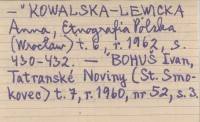 — " KOWALSKA-LEWICKA
Anna, Etnografia Polska
(Wrocław) t. 6, r. 1962, s.
430-432. — BOHUŠ Ivan,
Tatranské Noviny (St. Smo-
kovec) t. 7, r. 1960, nr 52, s. 3.